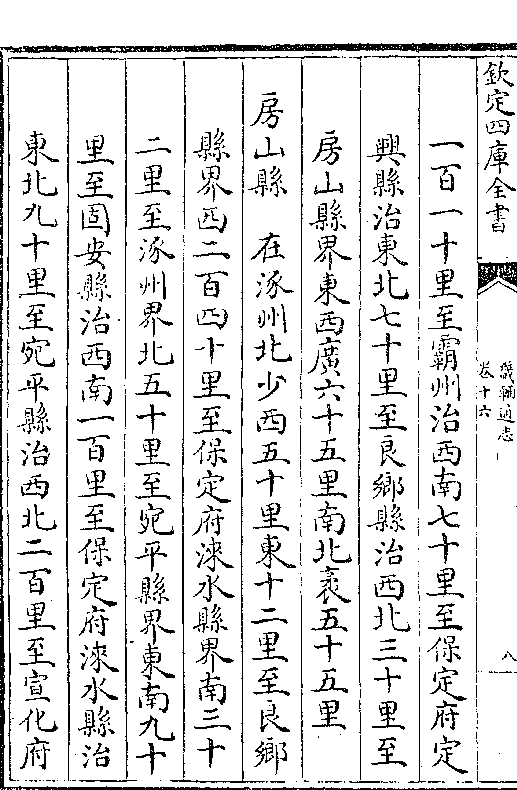 欽定四庫全書
畿輔通志
卷十六
八
一百一十里至霸州治西南七十里至保定府定
興縣治東北七十里至良鄉縣治西北三十里至
房山縣界東西廣六十五里南北袤五十五里
房山縣　在涿州北少西五十里東十二里至良鄉
縣界西二百四十里至保定府淶水縣界南三十
二里至涿州界北五十里至宛平縣界東南九十
里至固安縣治西南一百里至保定府淶水縣治
東北九十里至宛平縣治西北二百里至宣化府